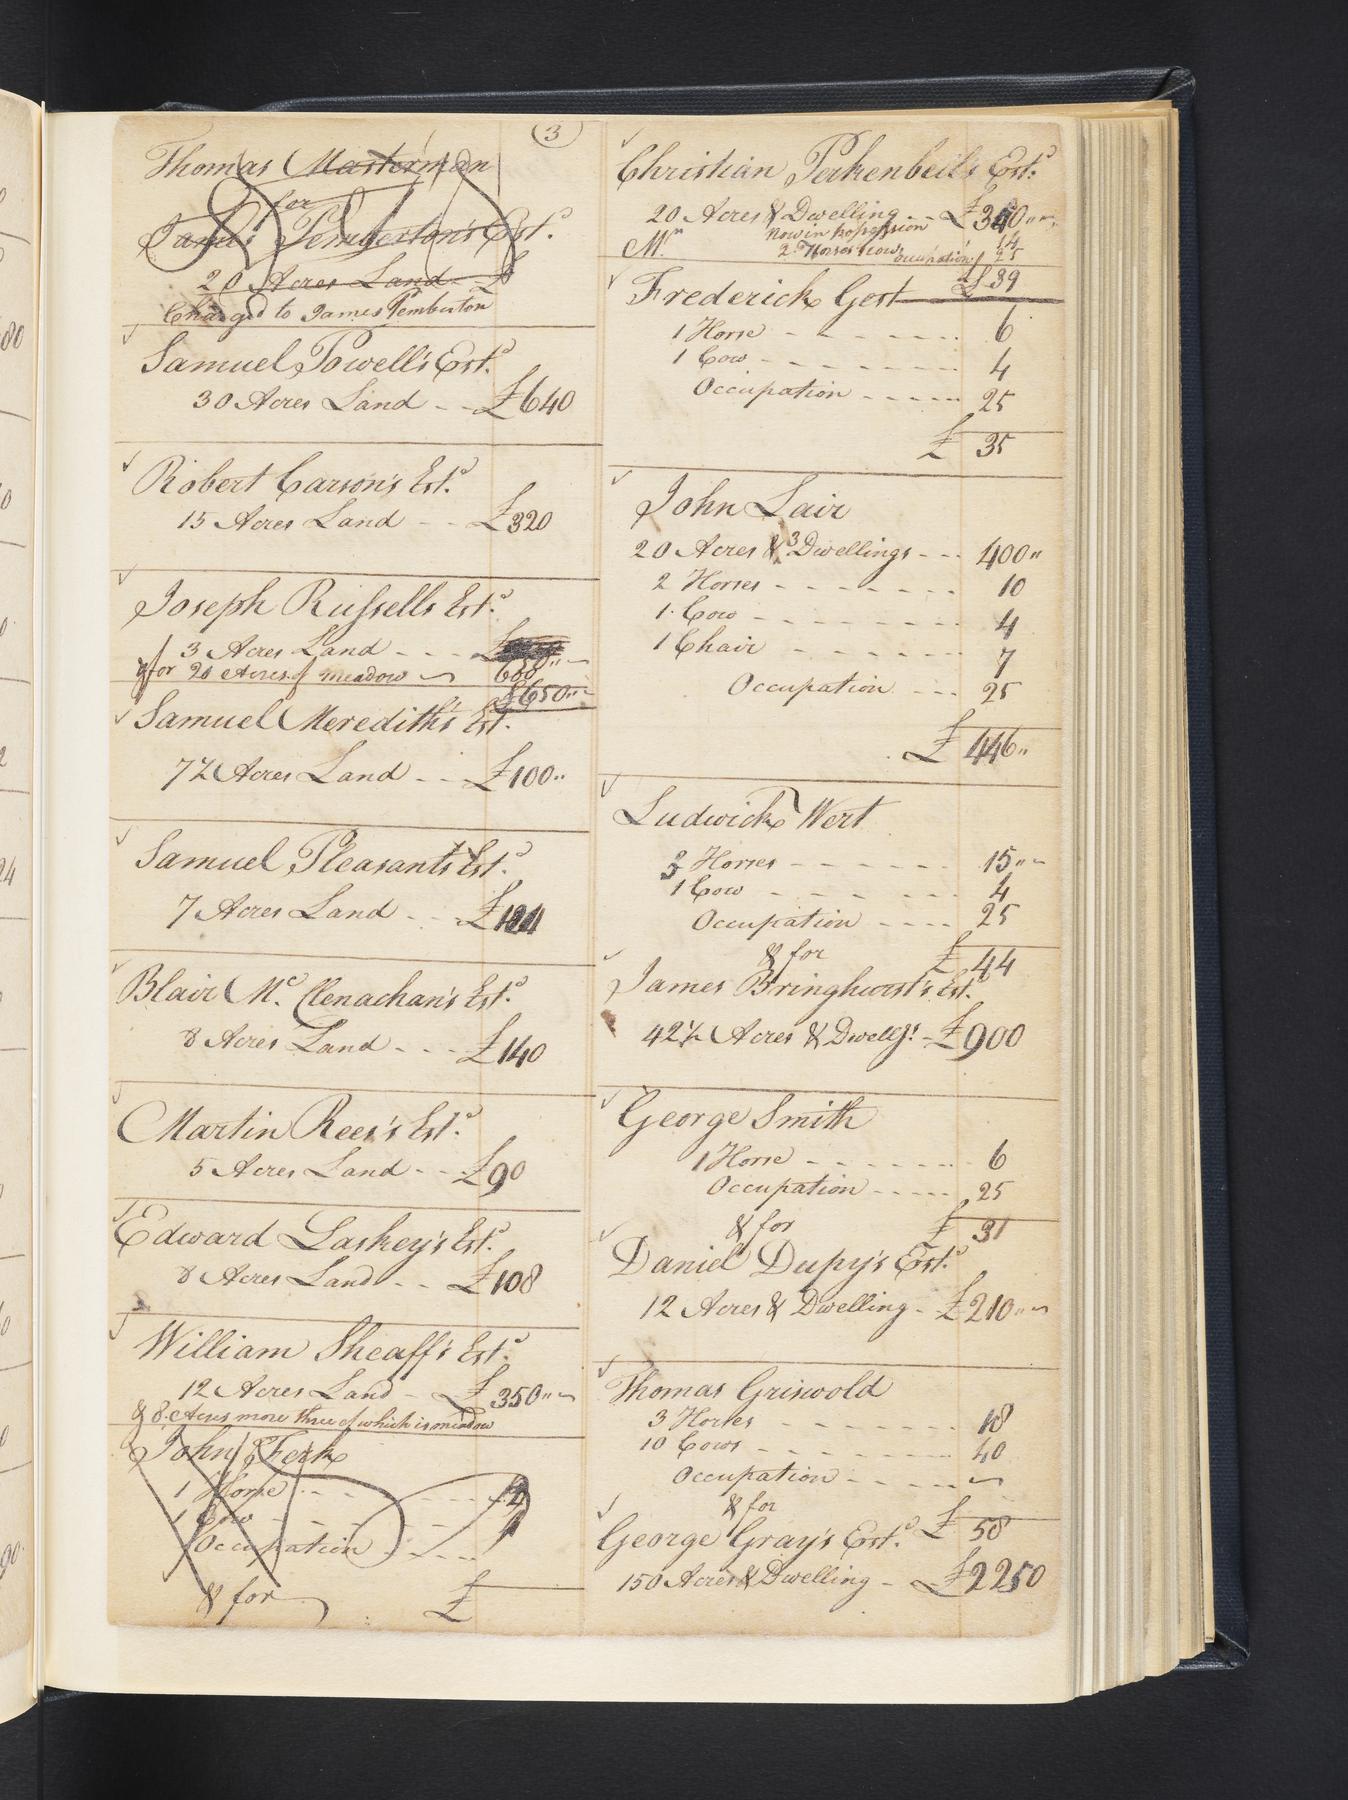 (3)
Thomas Masterman
for
Pemberton's Estd.
20 Acres Land - £
Charged to James Pemberton
Samuel Powell's Estd.
30 Acres Land - - £640
Robert Carson's Estd.
15 Acres Land - - £320
Joseph Russells Estd.
3 Acres Land - - -
& for 20 Acres of meadow
£650
Samuel Meredith's Estd.
7½ Acres Land - - £100
Samuel Pleasants Estd.
7 Acres Land - - £
Blair Mc. Clenachan's Estd.
8 Acres Land - - - £140
Martin Rees's Estd.
5 Acres Land - - £90
Edward Laskey's Estd.
8 Acres Land - - £108
William Sheaff's Estd.
12 Acres Land - £350
& 8 Acres more three of which is meadow
John
1 Horse - - -
1 Cow - - -
Occupation - - -
& for £
Christian Perkenbeil's Estd.
20 Acres & Dwelling - - £
Now in possession
2 Horses 1 Cow 14
occupation 25
£39
Frederick Gest
1 Horse - - - - 6
1 Cow - - - - 4
Occupation - - - - 25
£ 35
John Lair
20 Acres & 3 Dwellings - - - 400
2 Horses - - - - 10
1 Cow - - - - 4
1 Chair - - - - 7
Occupation - - - 25
£ 446
Ludwick Wert
3 Horses - - - - 15
1 Cow - - - - 4
Occupation - - - - 25
& for £ 44
James Bringhurst's Estd.
42½ Acres & Dwellgs. - £900
George Smith
1 Horse - - - - 6
Occupation - - - - 25
& for £ 31
Daniel Dupy's Estd.
12 Acres & Dwelling - £210
Thomas Griswold
3 Horses - - - - 18
10 Cows - - - - 40
Occupation - - - -
& for £ 58
George Gray's Estd.
150 Acres & Dwelling - £2250